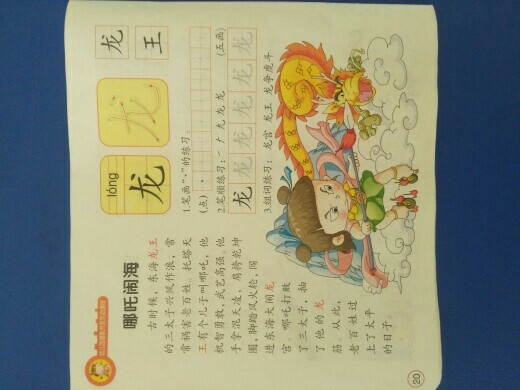 哪吒闹海
古时候，东海龙王
的三太子兴风作浪，常
常祸害老百姓。托塔天
王有个儿子叫哪吒，他
机智勇敢，武艺高强。他
手拿混天凌，肩挎乾坤
圈，脚踏风火轮，闯
进东海大闹龙
宫。哪吒打败
了三太子，抽
了他的龙
筋。从此，
老百姓过
上了太平
的日子。
lóng
龙
龙
龙
王
1.笔画“丶”的练习.
(点)
2.笔顺练习：一ナ九龙龙 (五画)
龙 龙 龙 龙 龙 龙
3.组词练习： 龙宫 龙王 龙争虎斗
20